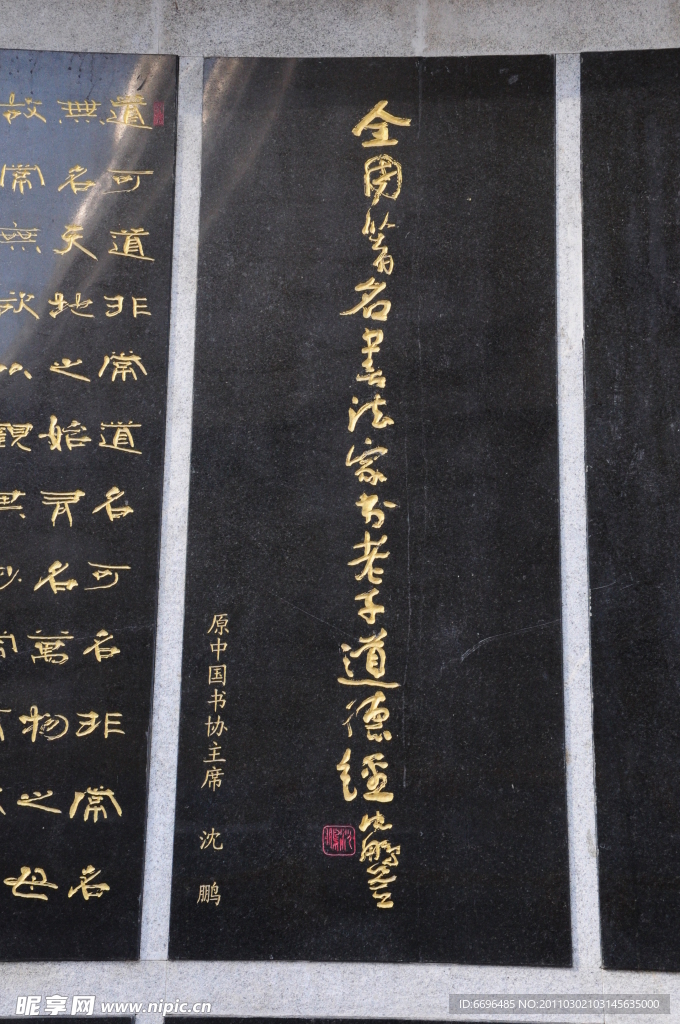 全國著名書法家书老子道德經 沈鵬
原中国书协主席 沈 鹏
道可道非常道名可名非常名
無名天地之始有名萬物之母
故常無欲以觀其妙
昵享网 www.nipic.cn
ID:6696485 NO:20110302103145635000